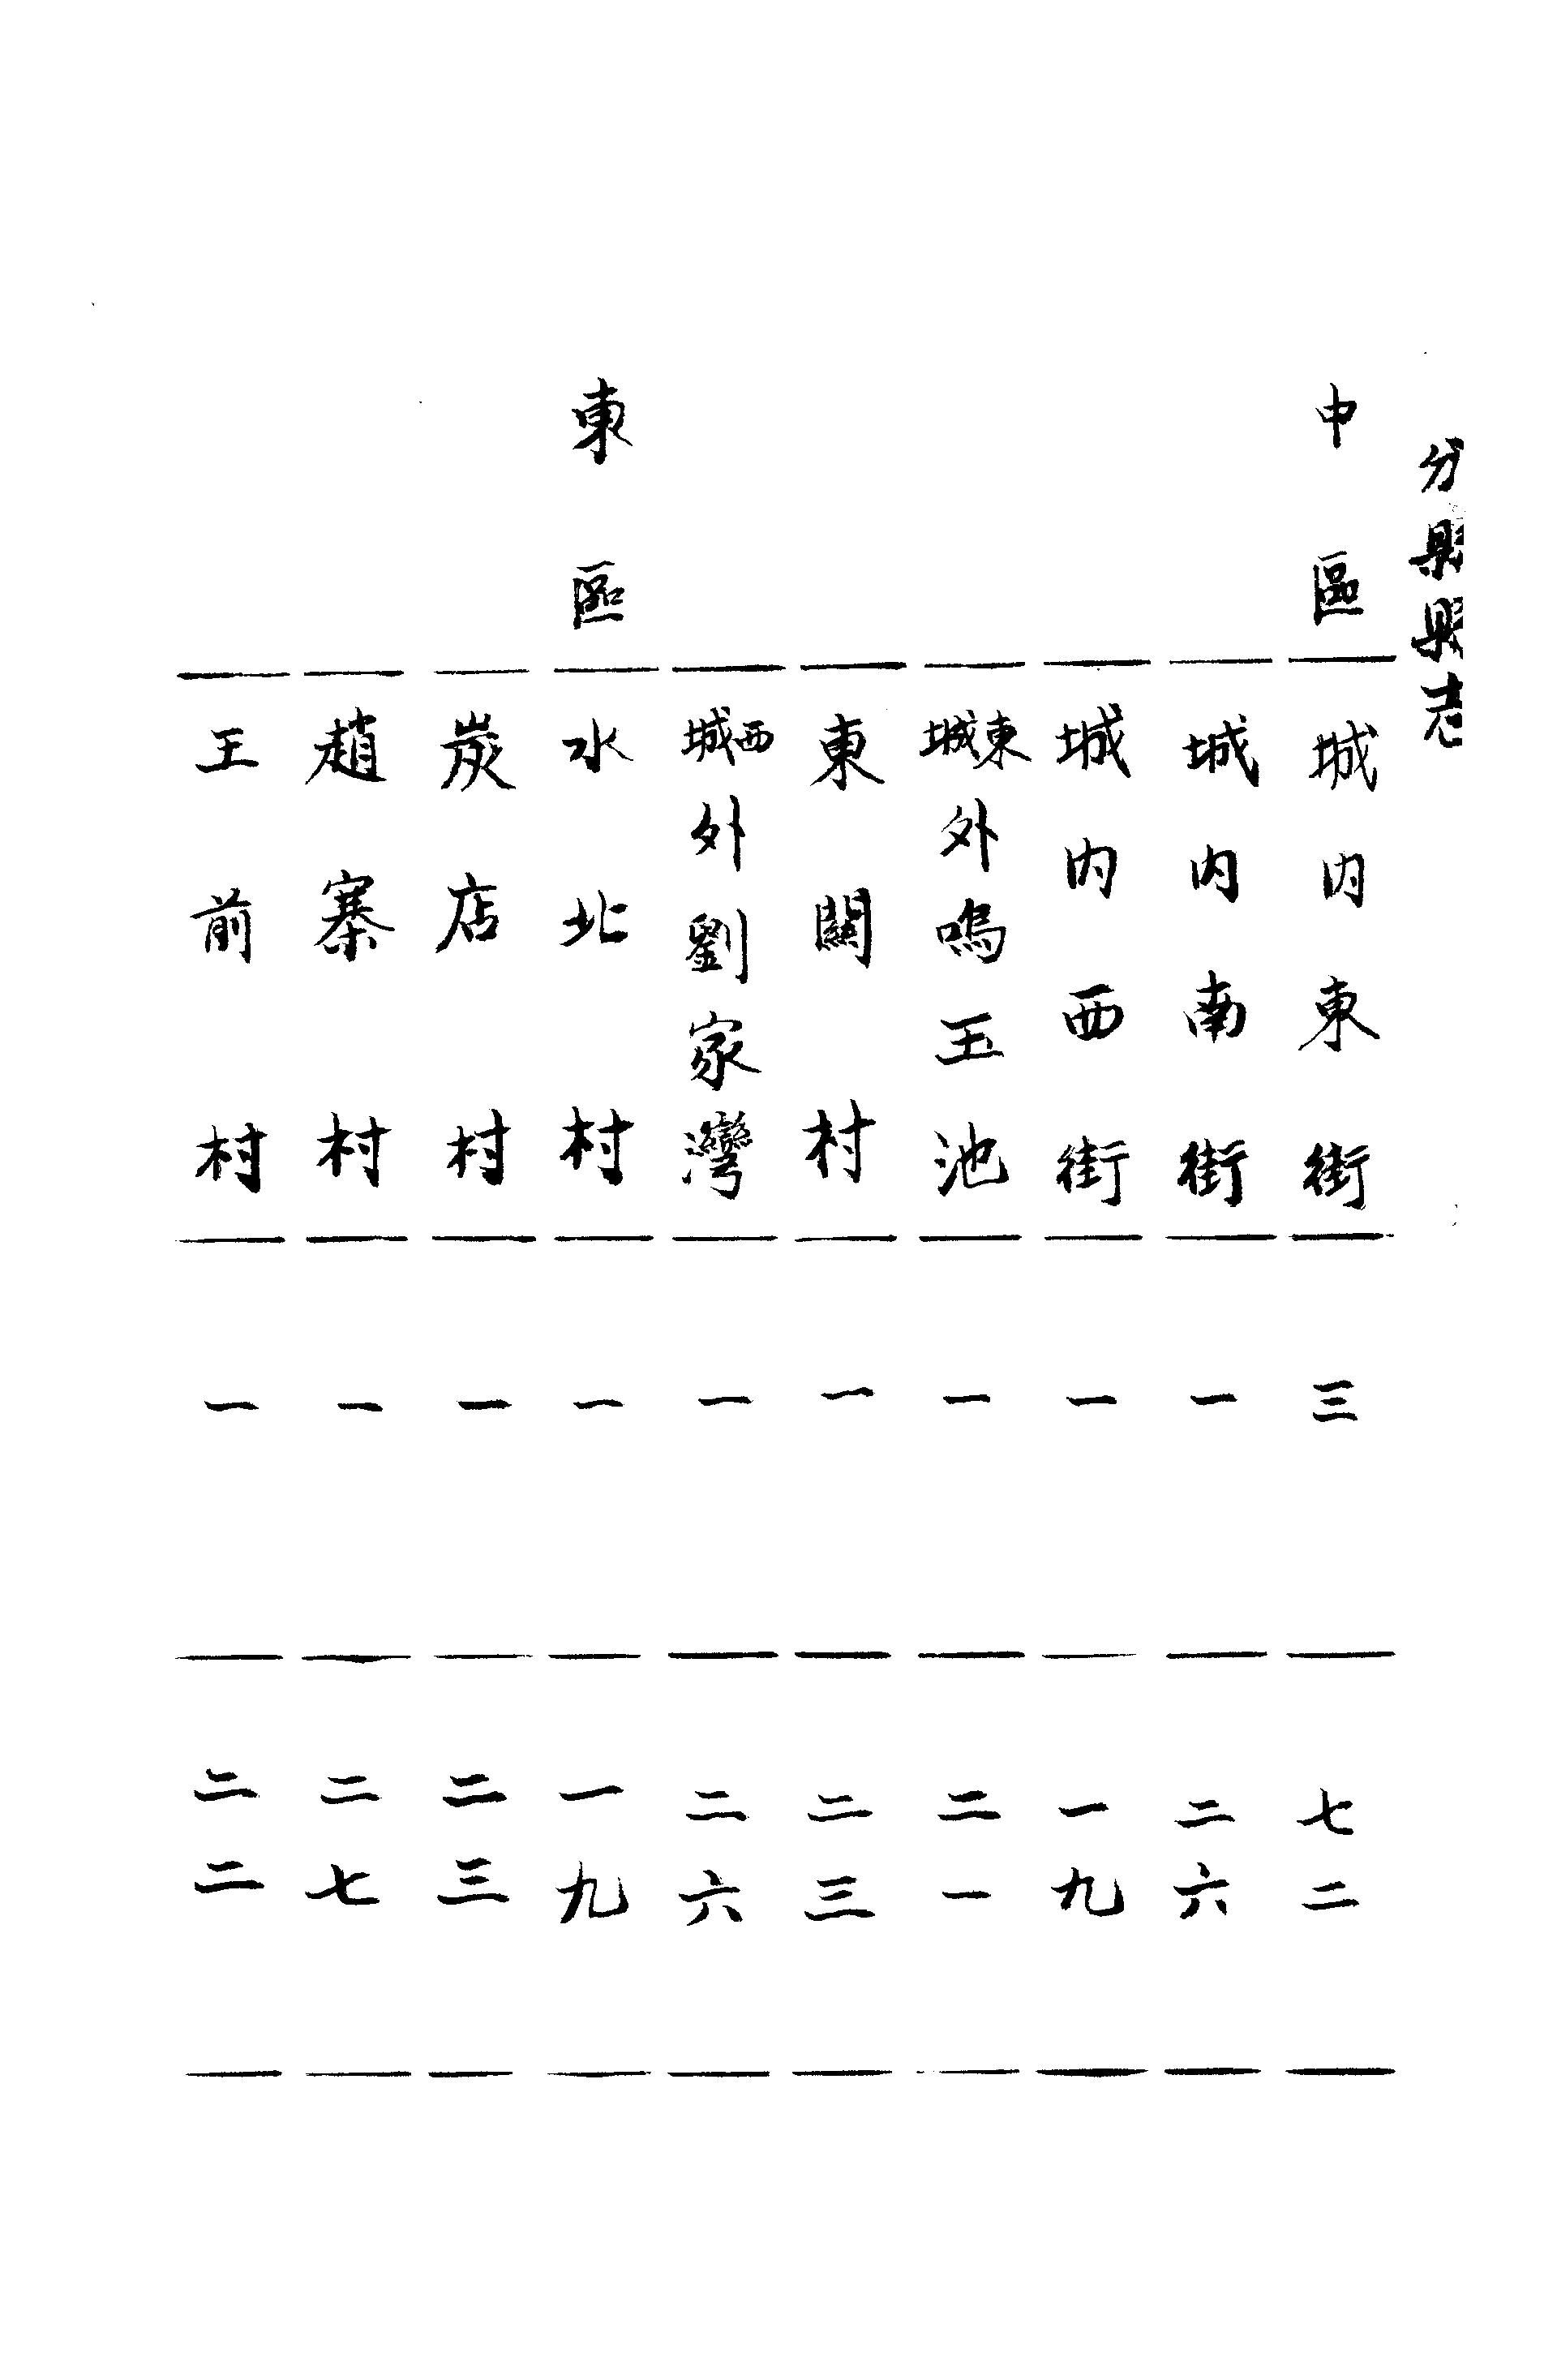 分縣縣志
中區 城内東街 三 七二
城内南街 一 二六
城内西街 一 一九
東城外嗚玉池 一 二一
東關村 一 二三
西城外劉家灣 一 二六
東區 水北村 一 一九
炭店村 一 二三
趙寨村 一 二七
王前村 一 二二